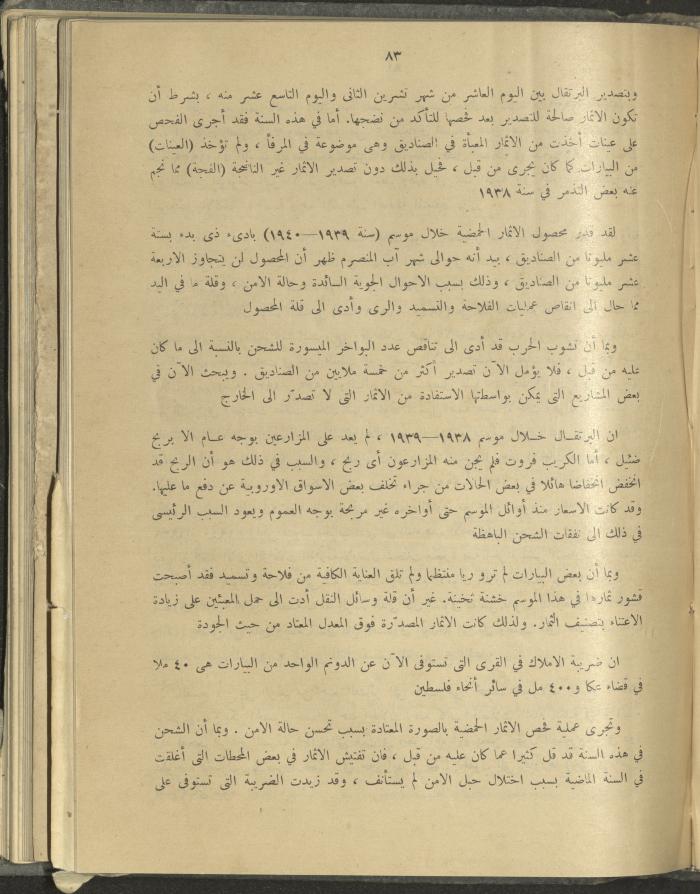 ٨٣
وبتصدير البرتقال بين اليوم العاشر من شهر تشرين الثانى واليوم التاسع عشر منه ، بشرط أن
تكون الاثمار صالحة للتصدير بعد فحصها للتأكد من نضجها. أما في هذه السنة فقد أجرى الفحص
على عينات أخذت من الاثمار المعبأة في الصناديق وهى موضوعة في المرفأ ، ولم تؤخذ (العينات)
من البيارات كما كان يجرى من قبل ، فحيل بذلك دون تصدير الاثمار غير الناضجة (الفجة) مما نجم
عنه بعض التذمر في سنة ١٩٣٨
لقد قدر محصول الاثمار الحمضية خلال موسم (سنة ١٩٣٩—١٩٤٠) بادىء ذى بدء بستة
عشر مليونا من الصناديق ، بيد أنه حوالى شهر آب المنصرم ظهر أن المحصول لن يتجاوز الاربعة
عشر مليونا من الصناديق ، وذلك بسبب الاحوال الجوية السائدة وحالة الامن ، وقلة ما في اليد
مما حال الى انقاص عمليات الفلاحة والتسميد والرى وأدى الى قلة المحصول
وبما أن نشوب الحرب قد أدى الى تناقص عدد البواخر الميسورة للشحن بالنسبة الى ما كان
عليه من قبل ، فلا يؤمل الآن تصدير أكثر من خمسة ملايين من الصناديق . ويبحث الآن في
بعض المشاريع التى يمكن بواسطتها الاستفادة من الاثمار التى لا تصدّر الى الخارج
ان البرتقـال خـلال موسم ١٩٣٨—١٩٣٩ ، لم يعد على المزارعين بوجه عـام الا بربح
ضئيل ، أما الكريب فروت فلم يجن منه المزارعون أى ربح ، والسبب في ذلك هو أن الربح قد
انخفض انخفاضا هائلا في بعض الحالات من جراء تخلف بعض الاسواق الاوروبية عن دفع ما عليها.
وقد كانت الاسعار منذ أوائل الموسم حتى أواخره غير مربحة بوجه العموم ويعود السبب الرئيسى
في ذلك الى نفقات الشحن الباهظة
وبما أن بعض البيارات لم ترو ريا منتظما ولم تلق العناية الكافية من فلاحة وتسميد فقد أصبحت
قشور ثمارها في هذا الموسم خشنة ثخينة. غير أن قلة وسائل النقل أدت الى حمل المعبئين على زيادة
الاعتناء بتصنيف الثمار. ولذلك كانت الاثمار المصدّرة فوق المعدل المعتاد من حيث الجودة
ان ضريبة الاملاك في القرى التى تستوفى الآن عن الدونم الواحد من البيارات هى ٤٠ ملا
في قضاء عكا و٤٠٠ مل في سائر أنحاء فلسطين
وتجرى عملية فحص الاثمار الحمضية بالصورة المعتادة بسبب تحسن حالة الامن . وبما أن الشحن
في هذه السنة قد قل كثيرا عما كان عليه من قبل ، فان تفتيش الاثمار في بعض المحطات التى أغلقت
في السنة الماضية بسبب اختلال حبل الامن لم يستأنف ، وقد زيدت الضريبة التى تستوفى على